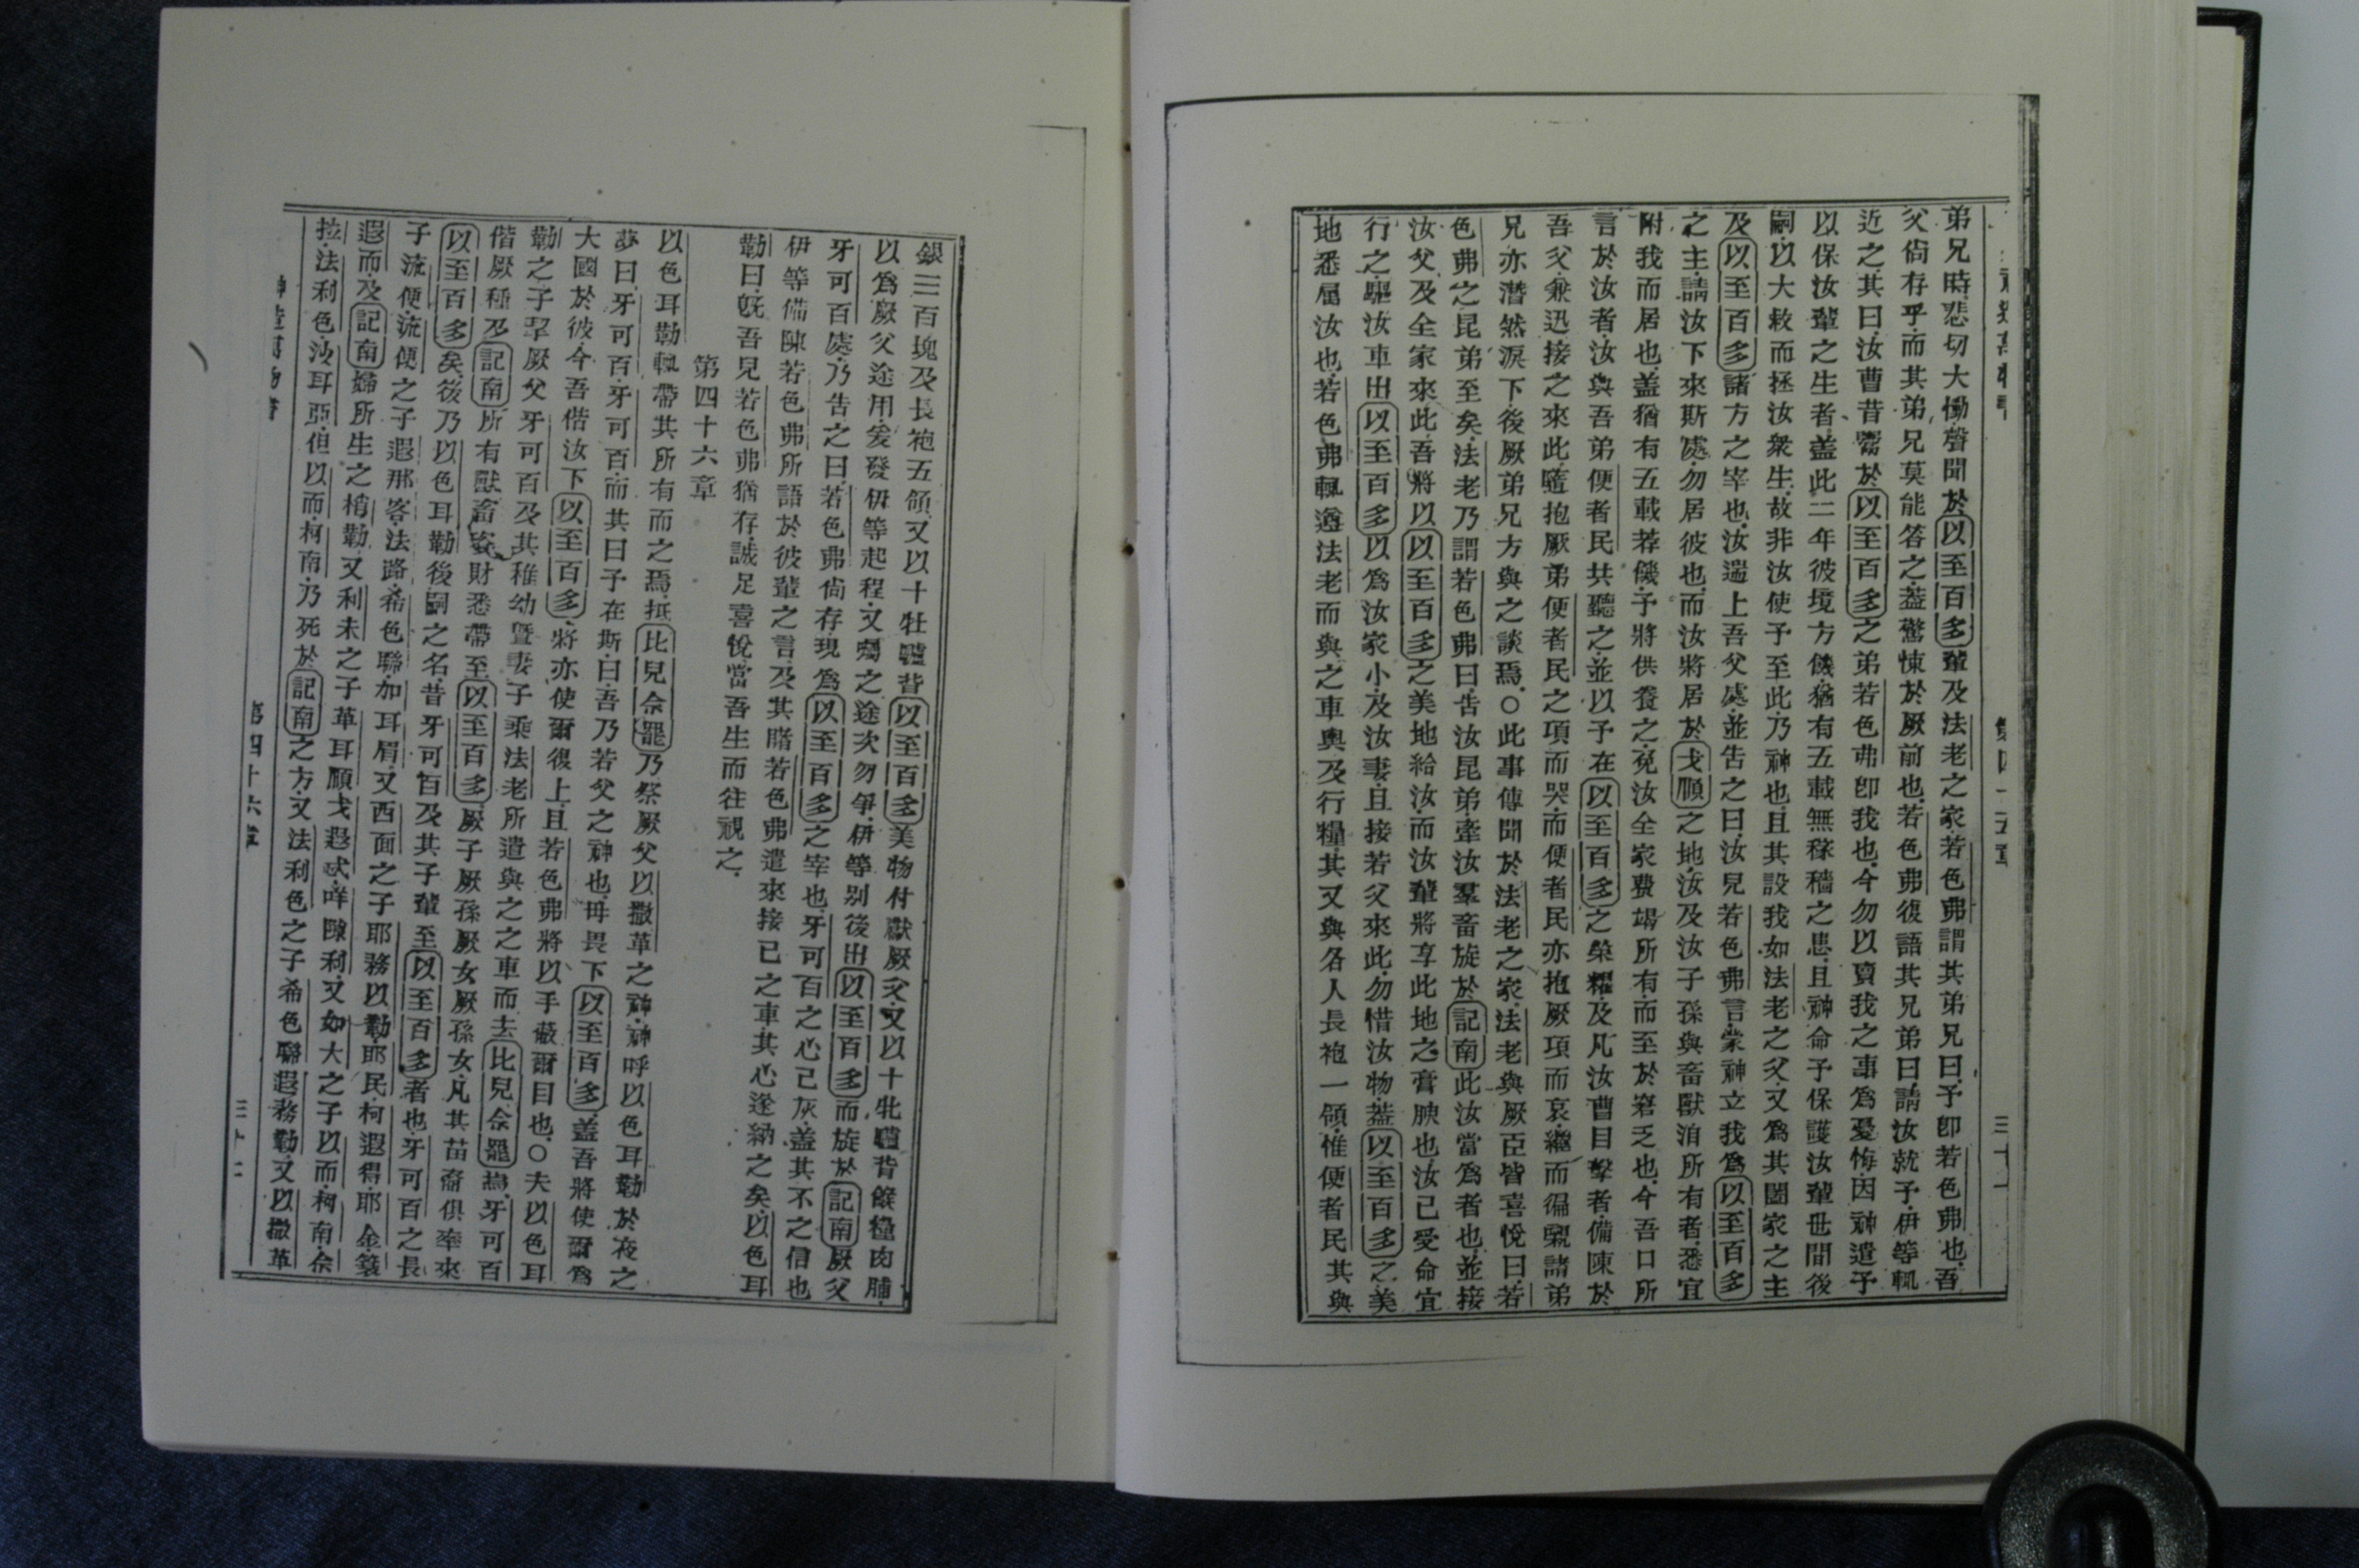 神造萬物書 第四十五章 三十一
弟兄時悲切大慟聲聞於以至百多輩及法老之家若色弗謂其弟兄曰予卽若色弗也吾
父尙存乎而其弟兄莫能答之葢驚悚於厥前也若色弗復語其兄弟曰請汝就予伊等輒
近之其曰汝曹昔鬻於以至百多之弟若色弗卽我也今勿以賣我之事爲憂悔因神遣予
以保汝輩之生者葢此二年彼境方饑猶有五載無稼穡之患且神命予保護汝輩世間後
嗣以大救而拯汝衆生故非汝使予至此乃神也且其設我如法老之父又爲其闔家之主
及以至百多諸方之宰也汝遄上吾父處並告之曰汝兒若色弗言蒙神立我爲以至百多
之主請汝下來斯處勿居彼也而汝將居於戈順之地汝及汝子孫與畜獸洎所有者悉宜
附我而居也葢猶有五載荐饑予將供養之免汝全家費竭所有而至於窘乏也今吾口所
言於汝者汝與吾弟便者民共聽之並以予在以至百多之榮耀及凡汝曹目擊者備陳於
吾父兼迅接之來此隨抱厥弟便者民之項而哭而便者民亦抱厥項而哀繼而徧嚫諸弟
兄亦潸然淚下後厥弟兄方與之談焉○此事傳聞於法老之家法老與厥臣皆喜悅曰若
色弗之昆弟至矣法老乃謂若色弗曰告汝昆弟牽汝羣畜旋於記南此汝當爲者也並接
汝父及全家來此吾將以以至百多之美地給汝而汝輩將享此地之膏腴也汝已受命宜
行之驅汝車出以至百多以爲汝家小及汝妻且接若父來此勿惜汝物葢以至百多之美
地悉屬汝也若色弗輒遵法老而與之車輿及行糧其又與各人長袍一領惟便者民其與
銀三百塊及長袍五領又以十牡驢背以至百多美物付獻厥父又以十牝驢背餱糧肉脯
以爲厥父途用爰發伊等起程又囑之途次勿爭伊等别後出以至百多而旋於記南厥父
牙可百處乃告之曰若色弗尙存現爲以至百多之宰也牙可百之心已灰葢其不之信也
伊等備陳若色弗所語於彼輩之言及其睹若色弗遣來接已之車其心遂納之矣以色耳
勒曰旣吾兒若色弗猶存誠足喜悅當吾生而往視之
第四十六章
以色耳勒輒帶其所有而之焉抵比兒佘罷乃祭厥父以撒革之神神呼以色耳勒於夜之
夢曰牙可百牙可百而其曰予在斯曰吾乃若父之神也毋畏下以至百多葢吾將使爾爲
大國於彼今吾偕汝下以至百多將亦使爾復上且若色弗將以手蔽爾目也○夫以色耳
勒之子挈厥父牙可百及其稚幼曁妻子乘法老所遣與之之車而去比兒佘罷焉牙可百
偕厥種及記南所有獸畜資財悉帶至以至百多厥子厥孫厥女厥孫女凡其苗裔俱率來
以至百多矣後乃以色耳勒後嗣之名昔牙可百及其子輩至以至百多者也牙可百之長
子流便流便之子遐那客法路希色聯加耳眉又西面之子耶務以勒耶民柯遐得耶金簑
遐而及記南婦所生之梢勒又利未之子革耳順戈遐忒咩黜利又如大之子以而柯南佘
拉法利色汝耳亞但以而柯南乃死於記南之方又法利色之子希色聯遐務勒又以撒革
神造萬物書 第四十六章 三十二